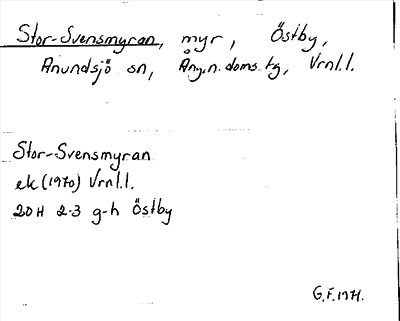 Stor-Svensmyran, myr, Östby,
Anundsjö sn, Ång.n.doms.hg, Vrnl.l.
Stor-Svensmyran
ek (1970) Vrnl.l.
20H 2-3 g-h Östby
G.F. 1971.